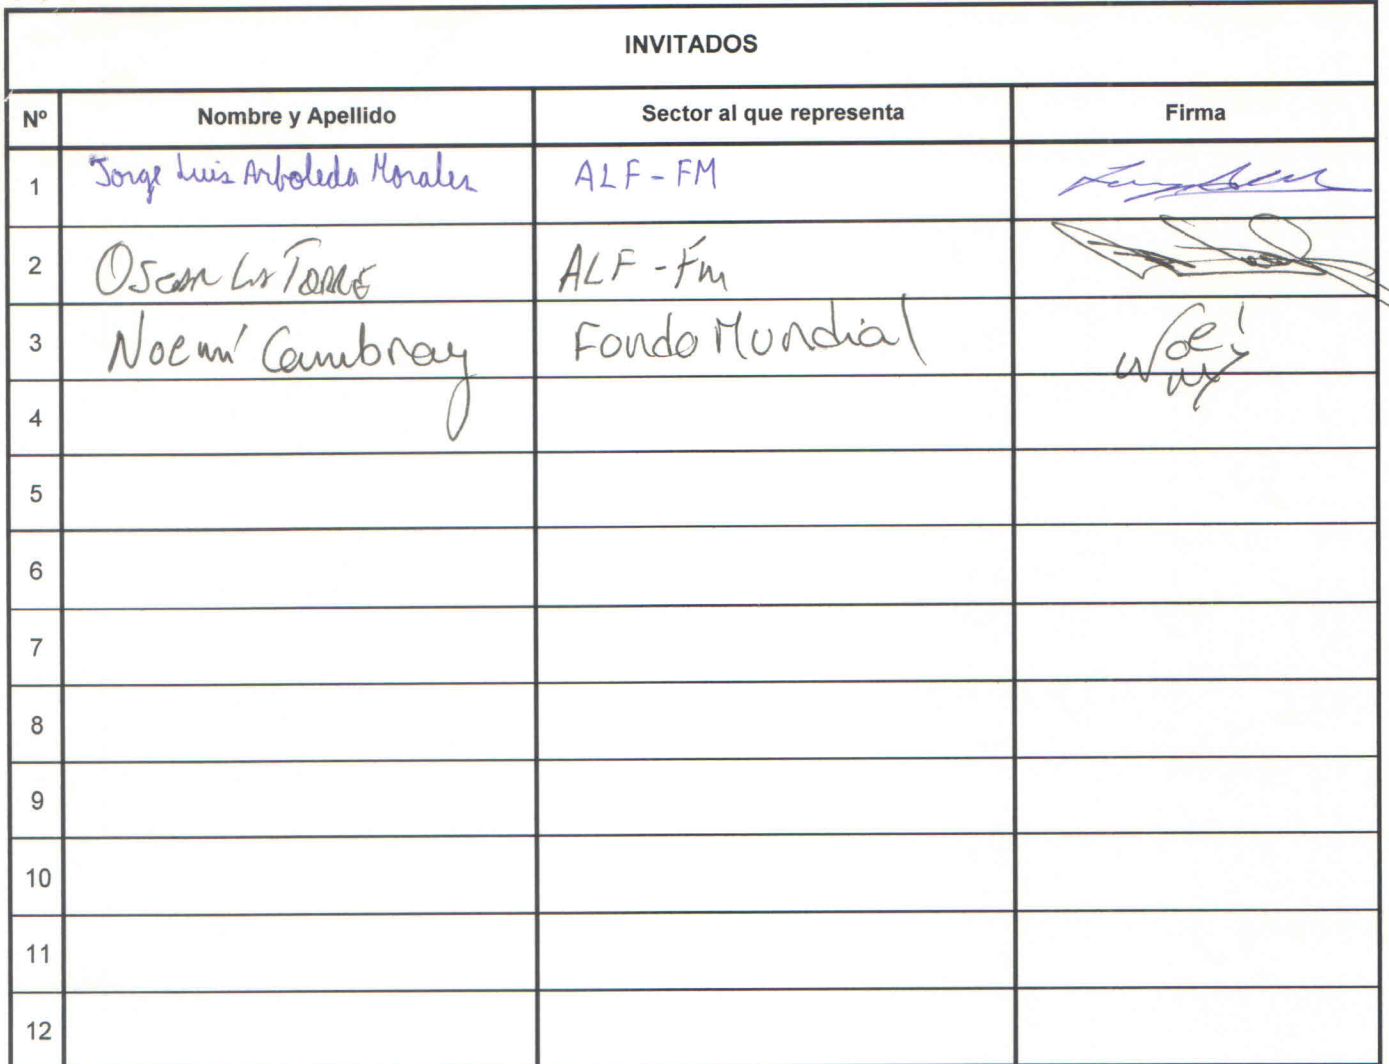 INVITADOS
Nº Nombre y Apellido Sector al que representa Firma
1 Jorge Luis Arboleda Morales ALF-FM
2 Oscar La Torre ALF-Fm
3 Noemí Cambray Fondo Mundial
4
5
6
7
8
9
10
11
12